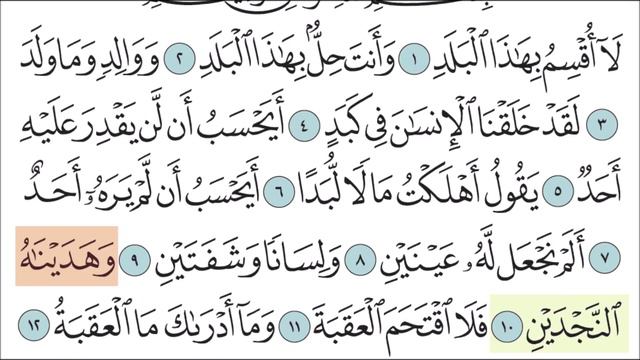 لَآ أُقۡسِمُ بِهَٰذَا ٱلۡبَلَدِ ١ وَأَنتَ حِلُّۢ بِهَٰذَا ٱلۡبَلَدِ ٢ وَوَالِدٖ وَمَا وَلَدَ
٣ لَقَدۡ خَلَقۡنَا ٱلۡإِنسَٰنَ فِي كَبَدٍ ٤ أَيَحۡسَبُ أَن لَّن يَقۡدِرَ عَلَيۡهِ
أَحَدٞ ٥ يَقُولُ أَهۡلَكۡتُ مَالٗا لُّبَدًا ٦ أَيَحۡسَبُ أَن لَّمۡ يَرَهُۥٓ أَحَدٌ
٧ أَلَمۡ نَجۡعَل لَّهُۥ عَيۡنَيۡنِ ٨ وَلِسَانٗا وَشَفَتَيۡنِ ٩ وَهَدَيۡنَٰهُ
ٱلنَّجۡدَيۡنِ ١٠ فَلَا ٱقۡتَحَمَ ٱلۡعَقَبَةَ ١١ وَمَآ أَدۡرَىٰكَ مَا ٱلۡعَقَبَةُ ١٢